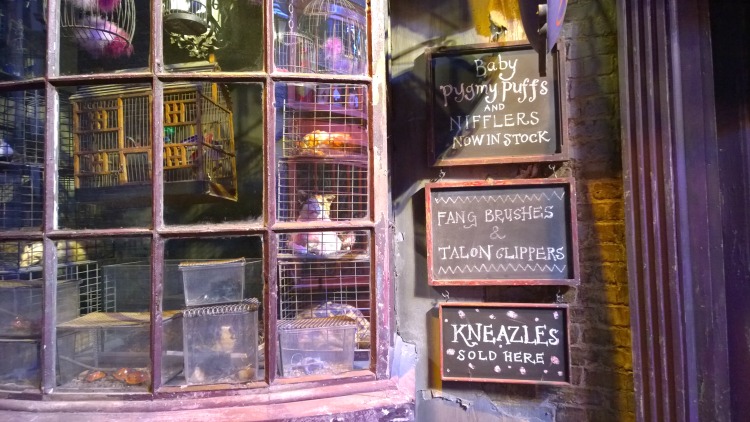 Baby
Pygmy Puffs
AND
NIFFLERS
NOW IN STOCK
FANG BRUSHES
&
TALON CLIPPERS
KNEAZLES
SOLD HERE